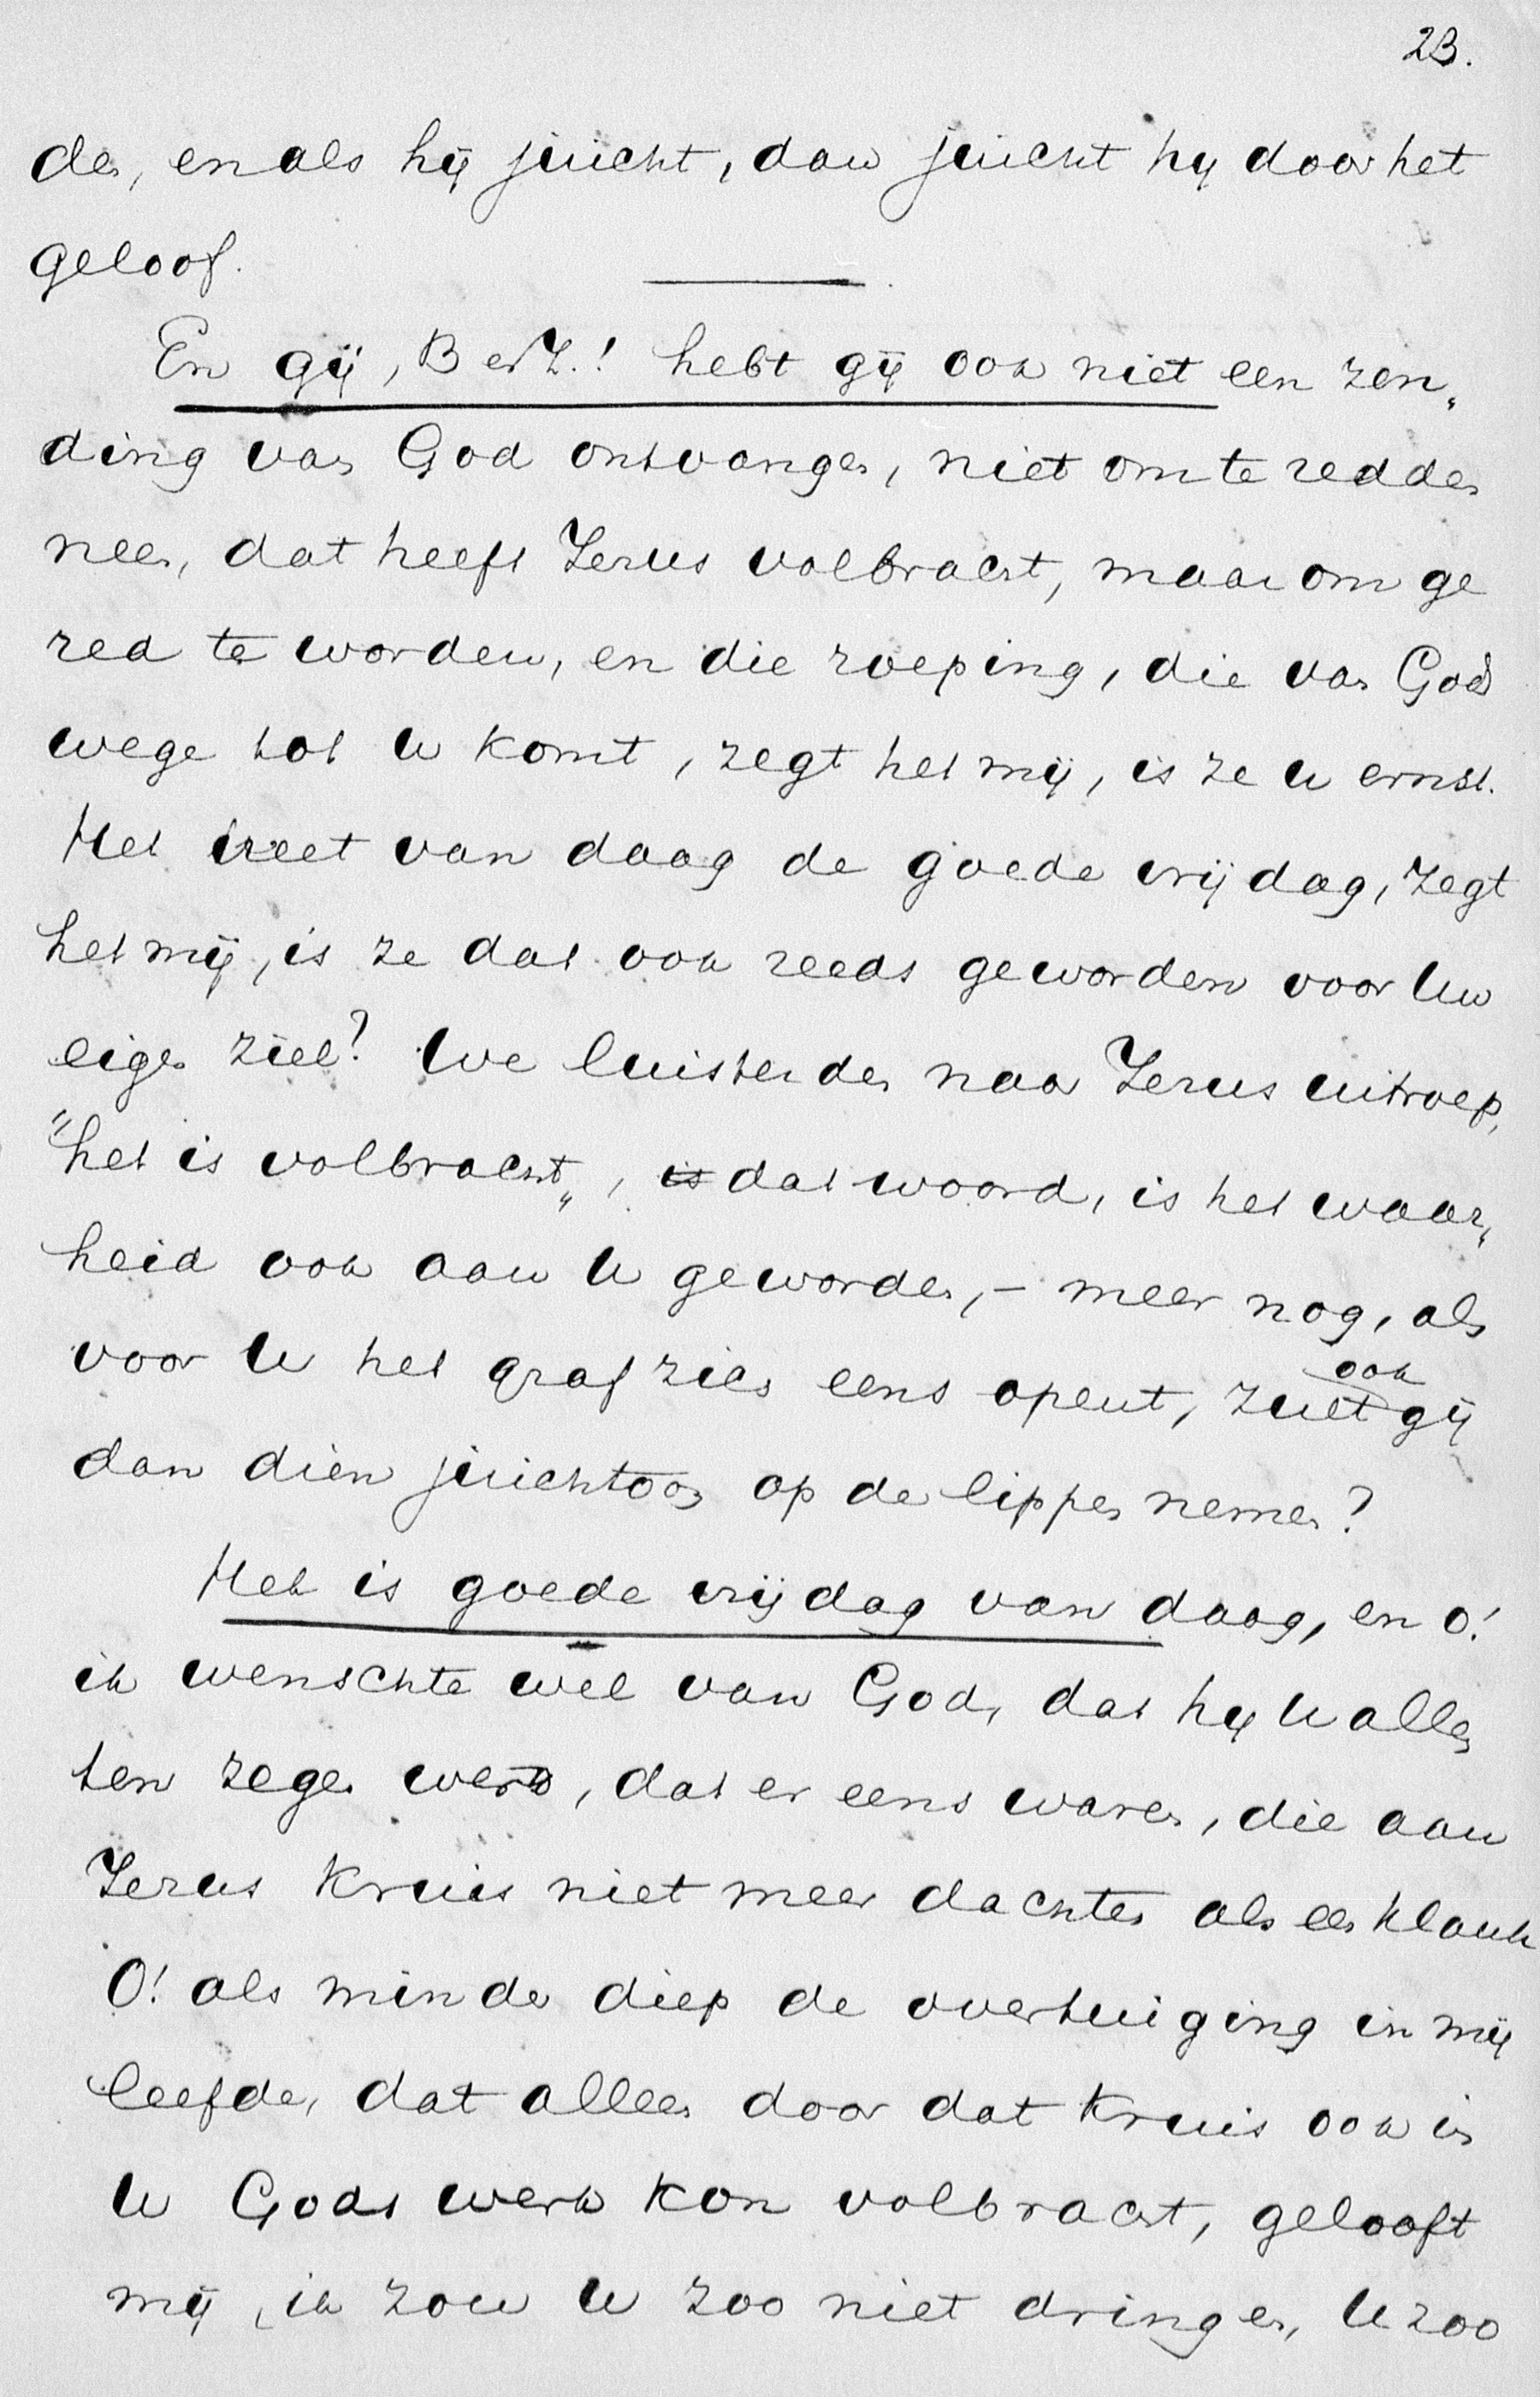 23.
den, en als hij juicht, dan juicht hij door het
geloof.
En gij, B en Z.! hebt gij ook niet een zen„
ding van God ontvangen, niet om te redden
neen, dat heeft Jezus volbracht, maar om ge
red te worden, en die roeping, die van Gods
wege tot U komt, zegt het mij, is ze U ernst.
Het heet van daag de goede vrijdag, zegt
het mij, is ze dat ook reeds geworden voor Uw
eigen ziel? We luisterden naar Jezus uitroep,
"het is volbracht„, is dat woord, is het waar„
heid ook aan U geworden, – meer nog, als
voor U het graf zich eens opent, zult ook gij
dan dien juichtoon op de lippen nemen?
Het is goede vrijdag van daag, en o!
ik wenschte wel van God, dat hij U allen
ten zegen werd, dat er eens waren, die aan
Jezus kruis niet meer dachten als een klank
O! als minder diep de overtuiging in mij
leefde, dat alleen door dat kruis ook in
U Gods werk kon volbracht, gelooft
mij, ik zou U zoo niet dringen, U zoo